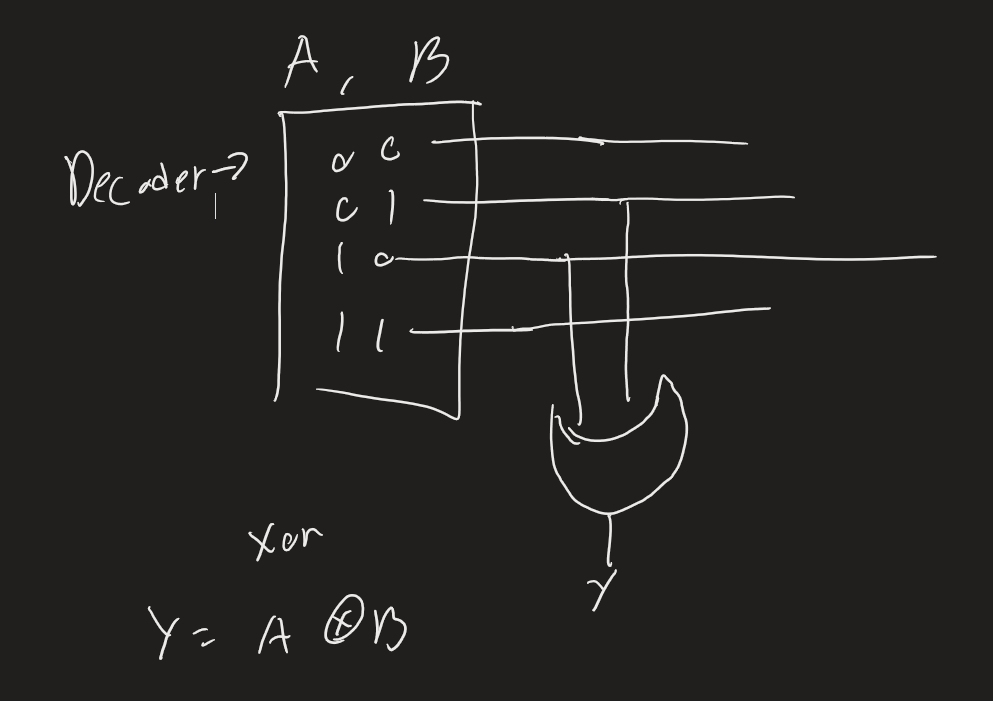 A, B
Decoder →
0 0
0 1
1 0
1 1
Xor
Y
Y = A ⊗ B